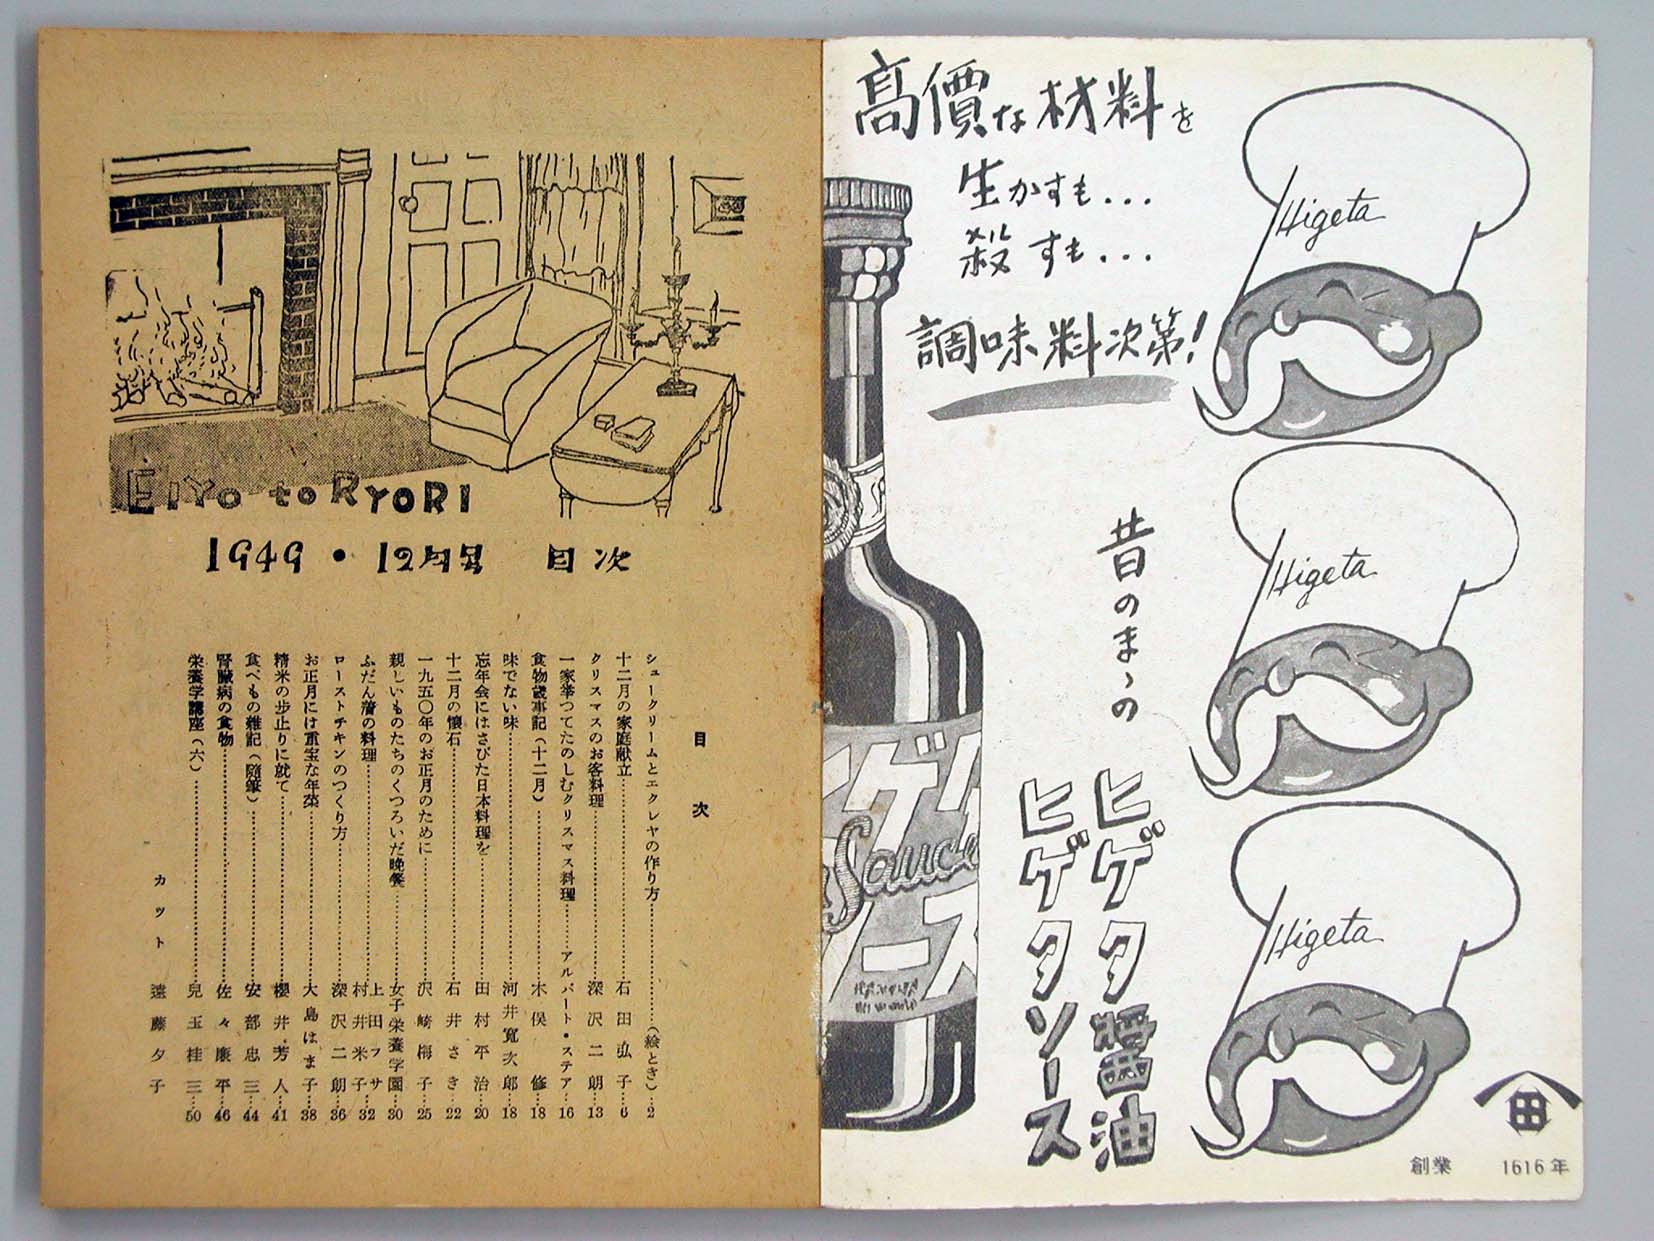 高價な材料を
生かすも...
殺すも...
調味料次第!
Higeta
Higeta
Higeta
昔のまゝの
ヒゲタ醤油
ヒゲタソース
ヒゲタ
Sauce
ソース
田
創業 1616年
EIYO to RYORI
1949・12月号 目次
目次
シュークリームとエクレヤの作り方……(絵とき)…2
十二月の家庭献立……石田弘子…6
クリスマスのお客料理……深沢二朗…13
一家挙つてたのしむクリスマス料理……アルバート・ステア…16
食物歳事記(十二月)……木俣修…18
味でない味……河井寛次郎…18
忘年会にはさびた日本料理を……田村平治…20
十二月の懐石……石井さき…22
一九五〇年のお正月のために……沢崎梅子…25
親しいものたちのくつろいだ晩餐……女子栄養学園…30
ふだん着の料理……上田フサ 村井米子…32
ローストチキンのつくり方……深沢二朗…36
お正月には重宝な年菜……大島はま子…38
精米の歩止りに就て……櫻井芳人…41
食べもの雑記(随筆)……安部忠三…44
腎臓病の食物……佐々廉平…46
栄養学講座(六)……児玉桂三…50
カット 遠藤夕子